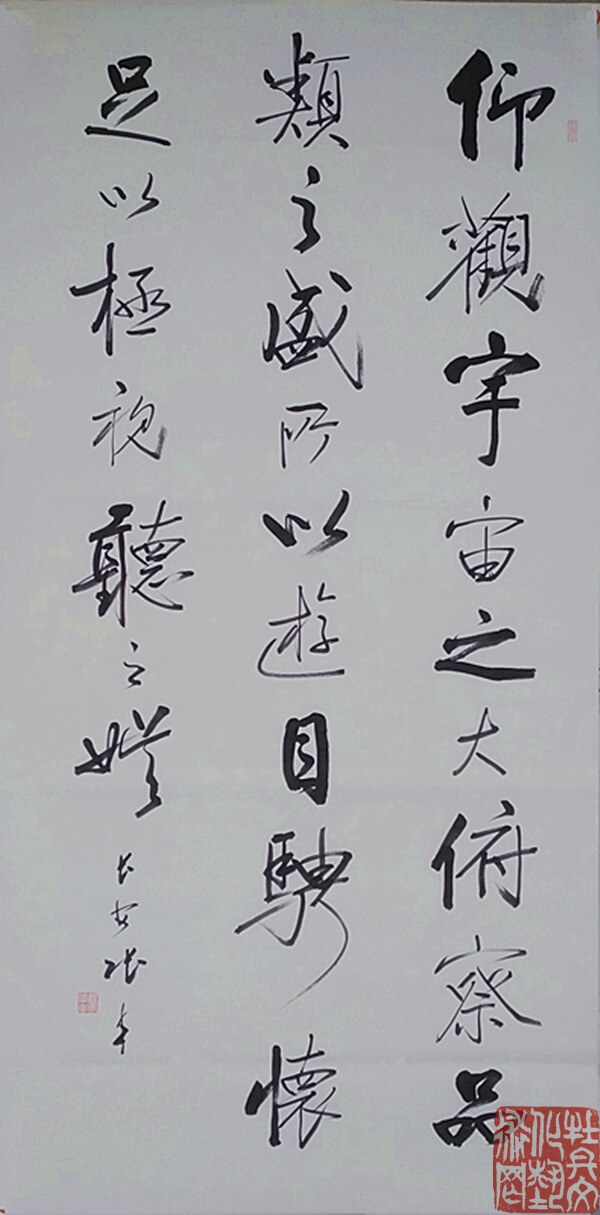 仰觀宇宙之大俯察品
類之盛所以遊目騁懷
足以極視聽之娛
長安